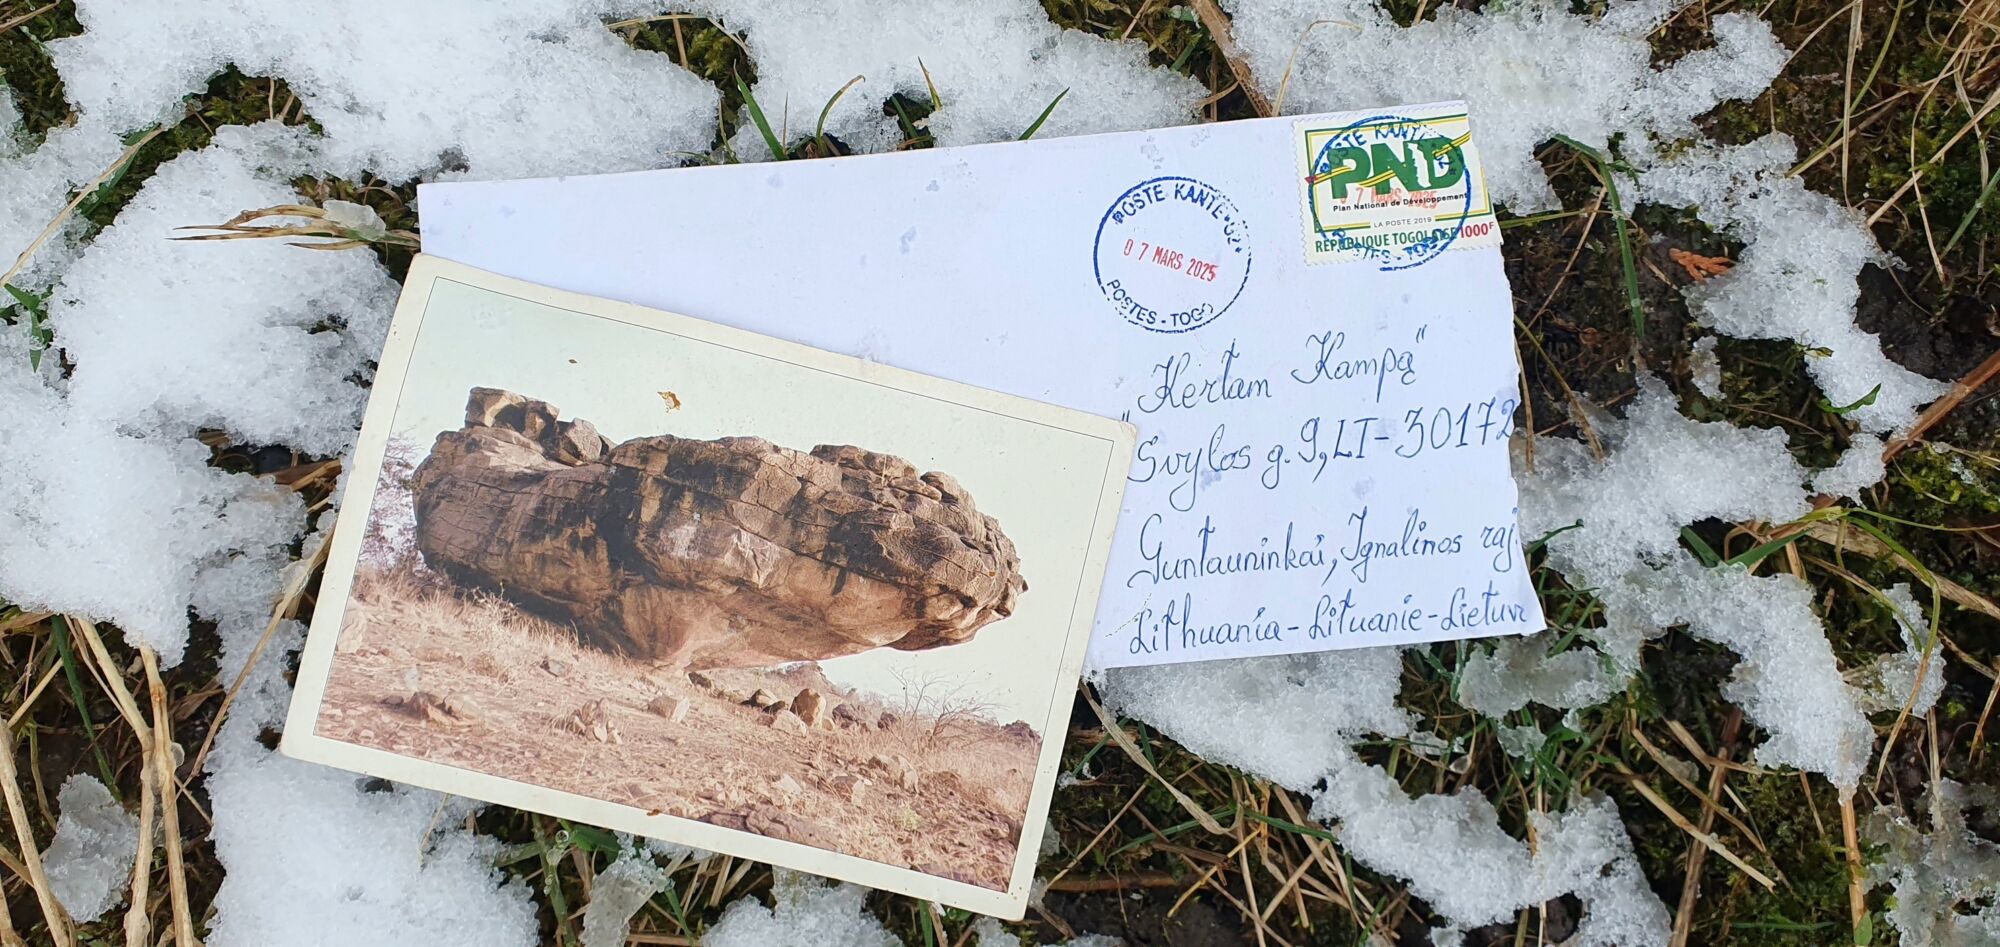 POSTE KANTE
PND
07 MARS 2025
Plan National de Développement
LA POSTE 2019
REPUBLIQUE TOGOLAISE 1000F
POSTE KANTE
07 MARS 2025
POSTES - TOGO
"Kertam Kampą"
Svylos g. 9, LI-30172
Guntauninkai, Ignalinos raj.
Lithuania-Lituanie-Lietuv